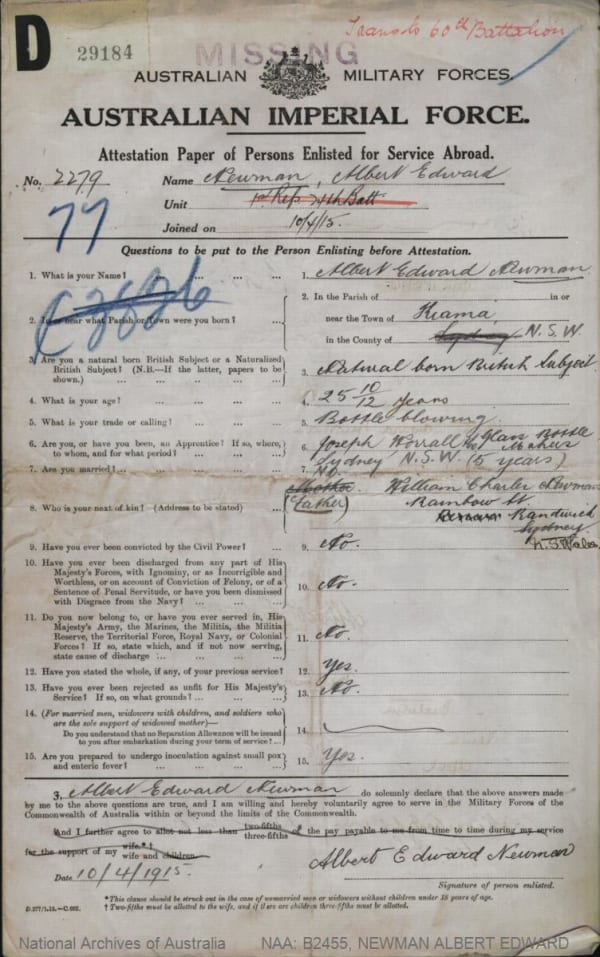 D
29184
MISSING
Trans to 60th Battalion
AUSTRALIAN MILITARY FORCES.
AUSTRALIAN IMPERIAL FORCE.
Attestation Paper of Persons Enlisted for Service Abroad.
No. 2279 Name Newman, Albert Edward
Unit
77
Joined on 10/4/15.
Questions to be put to the Person Enlisting before Attestation.
1. What is your Name? ... ... ... 1. Albert Edward Newman
2. In or near what Parish or Town were you born? ... 2. In the Parish of in or
near the Town of Kiama,
in the County of Sydney N.S.W
3. Are you a natural born British Subject or a Naturalized
British Subject? (N.B.—If the latter, papers to be
shown.) ... ... ... ... 3. Natural born British Subject
4. What is your age? ... ... ... 4. 25 10/12 years
5. What is your trade or calling? ... ... ... 5. Bottle blowing.
6. Are you, or have you been, an Apprentice? If so, where,
to whom, and for what period? ... ... 6. Joseph Worrall Glass Bottle
Sydney N.S.W (5 years)
7. Are you married? ... ... ... ... 7. No.
8. Who is your next of kin? (Address to be stated) ... Mother. William Charles Newman
(Father) Rainbow St.
Randwick
Sydney
N.S.Wales
9. Have you ever been convicted by the Civil Power? ... 9. No.
10. Have you ever been discharged from any part of His
Majesty's Forces, with Ignominy, or as Incorrigible and
Worthless, or on account of Conviction of Felony, or of a
Sentence of Penal Servitude, or have you been dismissed
with Disgrace from the Navy? ... ... ... 10. No.
11. Do you now belong to, or have you ever served in, His
Majesty's Army, the Marines, the Militia, the Militia
Reserve, the Territorial Force, Royal Navy, or Colonial
Forces? If so, state which, and if not now serving,
state cause of discharge ... ... ... 11. No.
12. Have you stated the whole, if any, of your previous service? 12. Yes.
13. Have you ever been rejected as unfit for His Majesty's
Service? If so, on what grounds? ... ... 13. No.
14. (For married men, widowers with children, and soldiers who
are the sole support of widowed mother)—
Do you understand that no Separation Allowance will be issued
to you after embarkation during your term of service? ... 14.
15. Are you prepared to undergo inoculation against small pox
and enteric fever? ... ... ... ... 15. Yes.
I, Albert Edward Newman do solemnly declare that the above answers made
by me to the above questions are true, and I am willing and hereby voluntarily agree to serve in the Military Forces of the
Commonwealth of Australia within or beyond the limits of the Commonwealth.
And I further agree to allot not less than two-fifths three-fifths of the pay payable to me from time to time during my service
for the support of my wife.*†
wife and children.
Albert Edward Newman
Date 10/4/1915.
Signature of person enlisted.
*This clause should be struck out in the case of unmarried men or widowers without children under 18 years of age.
† Two-fifths must be allotted to the wife, and if there are children three-fifths must be allotted.
National Archives of Australia NAA: B2455, NEWMAN ALBERT EDWARD